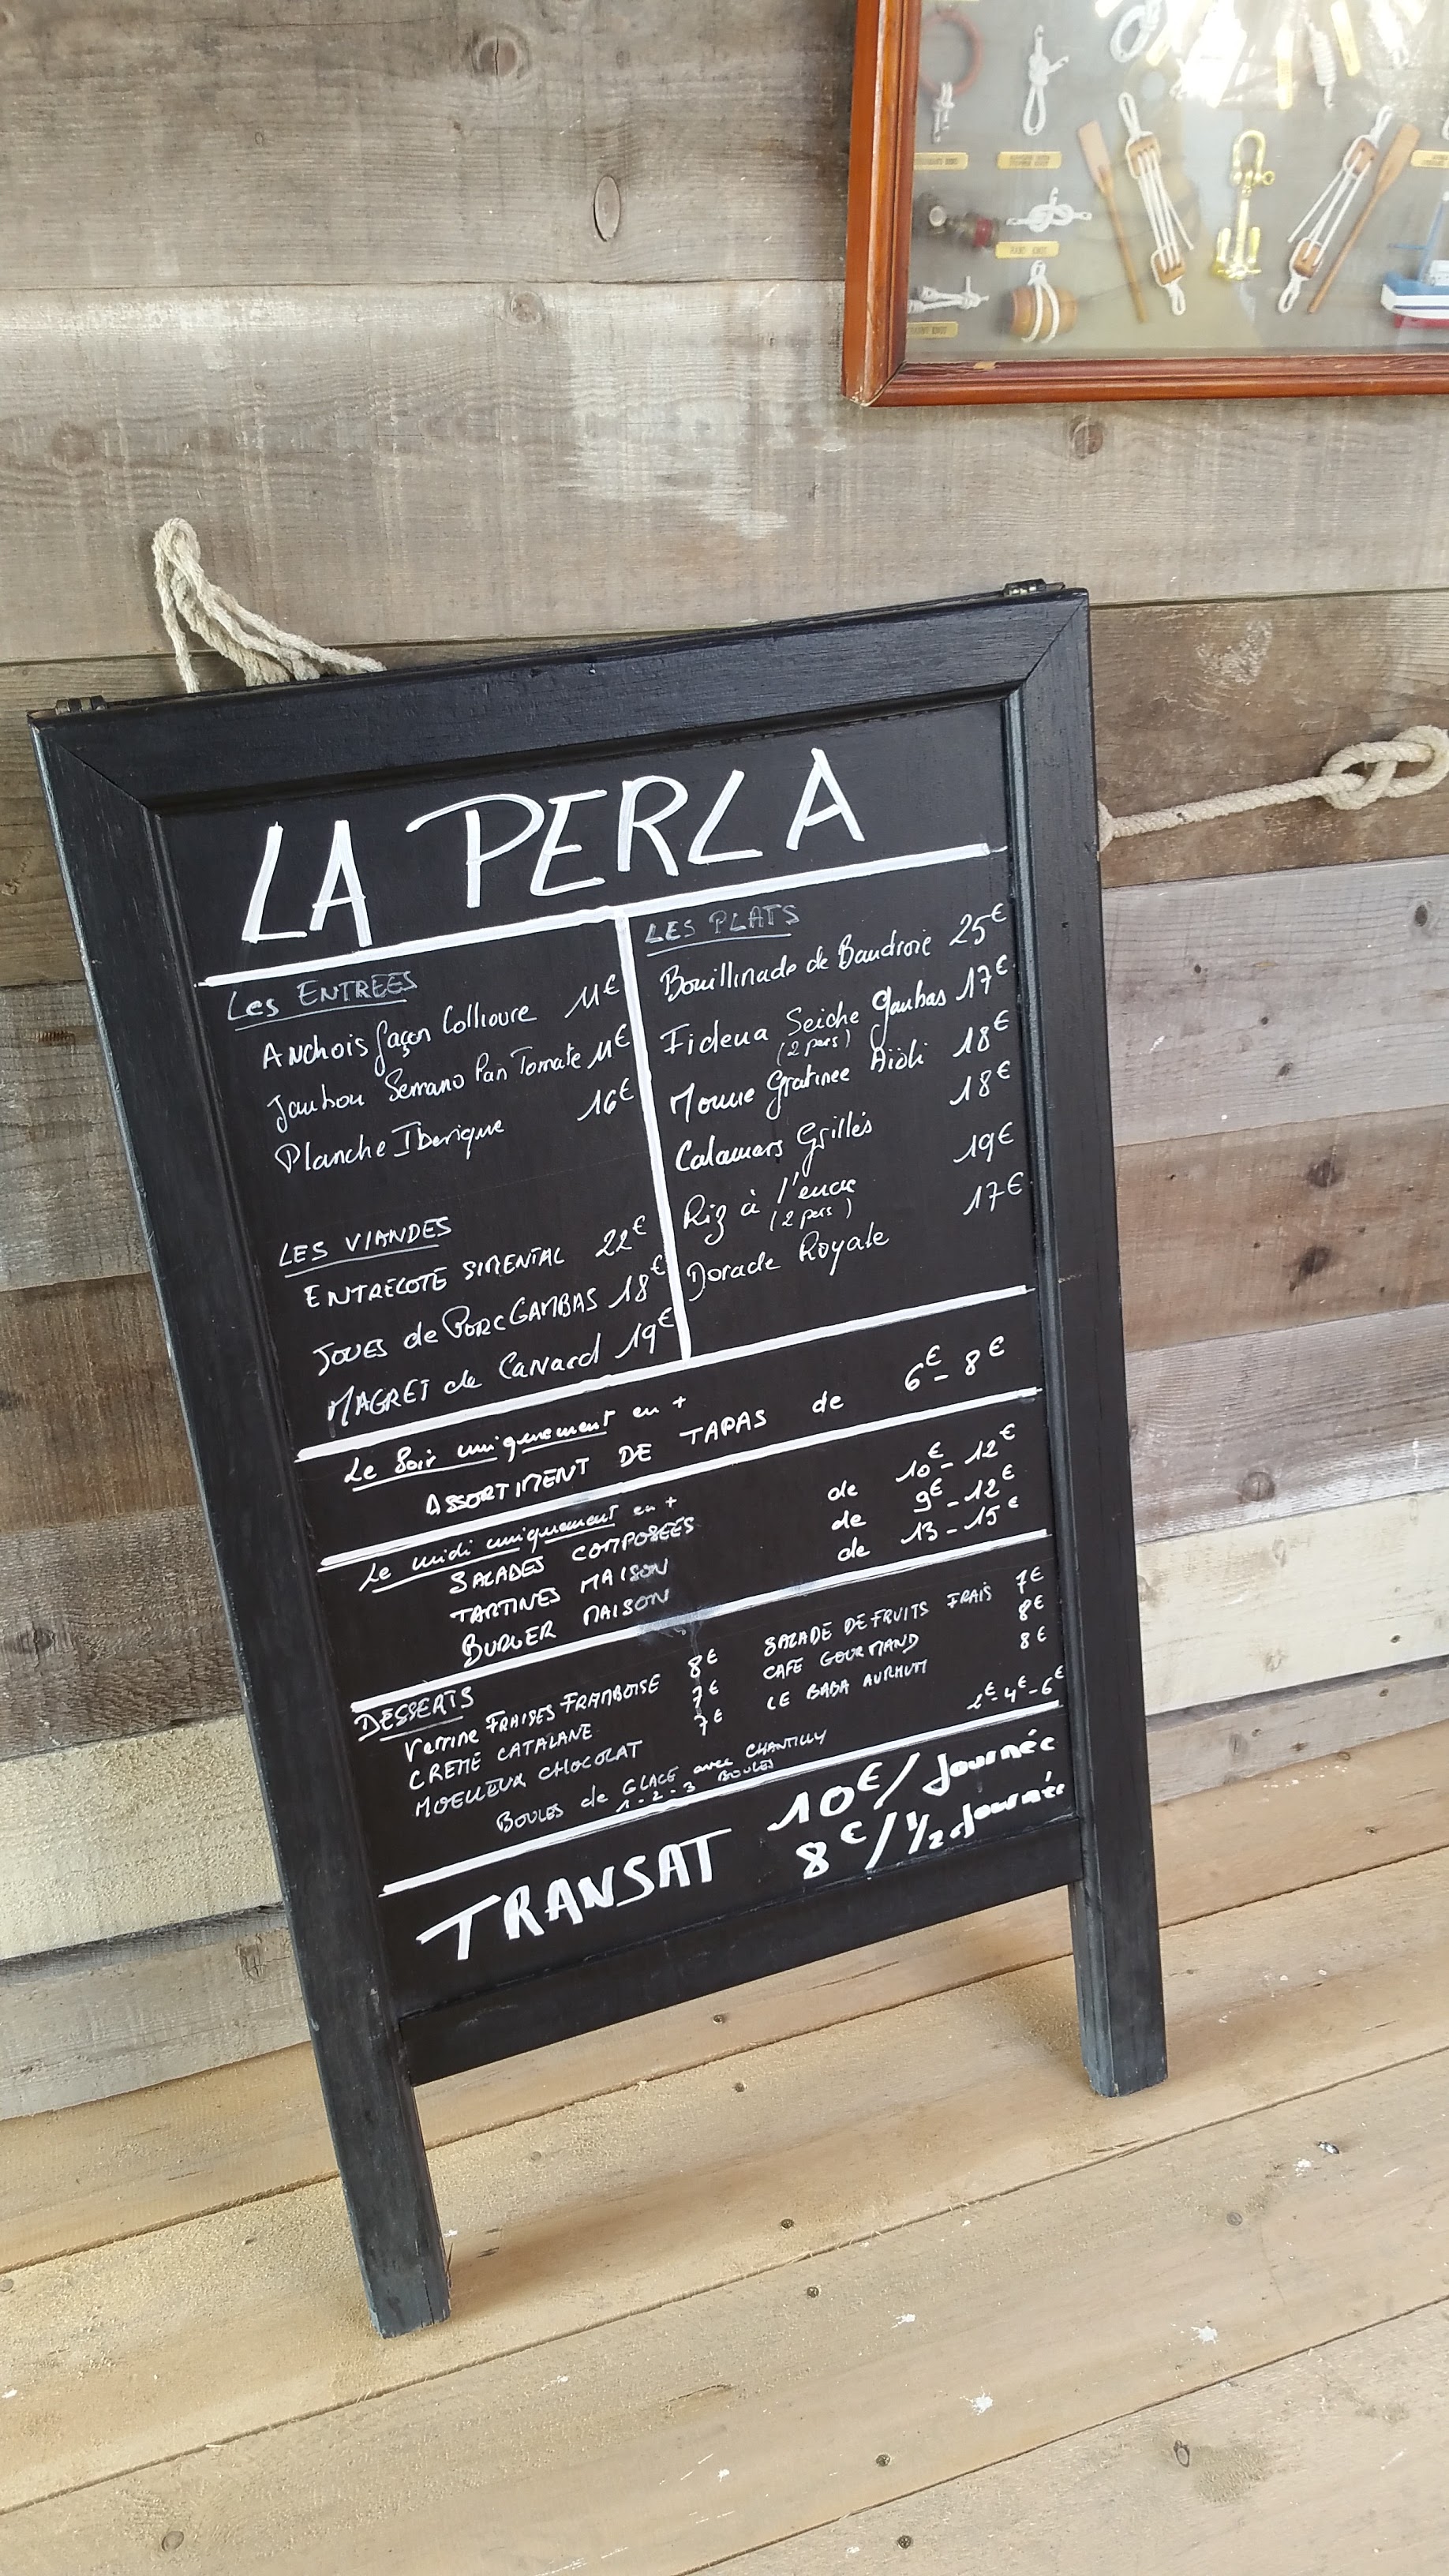 LA PERLA
Les ENTREES
ANchois façon Collioure 11€
Jambon Serrano Pan Tomate 11€
Planche IBerique 16€
LES VIANDES
ENTRECOTE SIMENTAL 22€
JOUES de PORC GAMBAS 18€
MAGRET de CaNard 19€
LES PLATS
Bouillinade de Baudroie 25€
Fideua Seiche Gambas 17€
(2 pers)
Morue Gratinee Aïoli 18€
Calamars Grillés 18€
Riz à l'encre 19€
(2 pers)
Dorade Royale 17€
Le Soir uniquement en +
ASSORTIMENT DE TAPAS de 6€ - 8€
Le midi uniquement en +
SALADES COMPOSÉES de 10€ - 12€
TARTINES MAISON de 9€ - 12€
BURGER MAISON de 13 - 15€
DESSERTS
Verrine FRAISES FRAMBOISE 8€
CREME CATALANE 7€
MOELLEUX CHOCOLAT 7€
SALADE DE FRUITS FRAIS 7€
CAFE GOURMAND 8€
LE BABA AU RHUM 8€
BOULES de GLACE avec CHANTILLY 2€ - 4€ - 6€
1 - 2 - 3 BOULES
TRANSAT 10€/Journée
8€/1/2 Journée